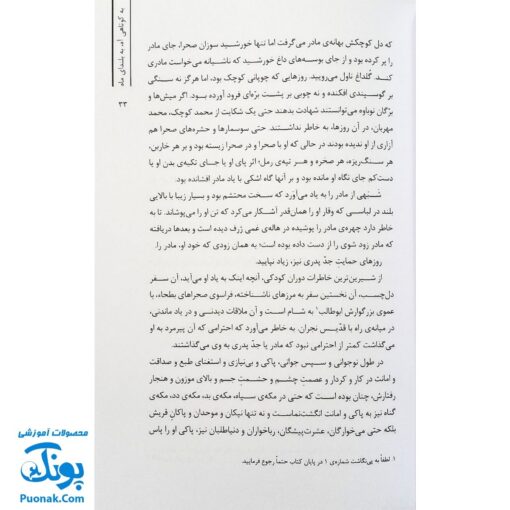 به کوتاهی آه، به بلندای ماه
۳۳
که دل کوچکش بهانه‌ی مادر می‌گرفت اما تنها خورشید سوزان صحرا، جای مادر
را پر کرده بود و از جای بوسه‌های داغ خورشید که ناشیانه می‌خواست مادری
کند. گلداغ تاول می‌رویید. روزهایی که چوپانی کوچک بود، اما هرگز نه سنگی
بر گوسپندی افکنده و نه چوبی بر پشت بزّه‌ای فرود آورده بود. اگر میش‌ها و
بزّگان نوباوه می‌توانستند شهادت بدهند حتی یک شکایت از محمد کوچک، محمد
مهربان، در آن روزها، به خاطر نداشتند. حتی سوسمارها و حشره‌های صحرا هم
آزاری از او ندیده بودند در حالی که او با صحرا و در صحرا زیسته بود و بر هر خاربن،
هر سنگ‌ریزه، هر صخره و هر تپه‌ی رمل؛ اثر پای او یا جای تکیه‌ی بدن او یا
دست‌کم جای نگاه او مانده بود و بر آنها گاه اشکی با یاد مادر افشانده بود.
شبَهی از مادر را به یاد می‌آورد که سخت محتشم بود و بسیار زیبا با بالایی
بلند در لباسی که وقار او را همان‌قدر آشکار می‌کرد که تن او را می‌پوشاند. تا به
خاطر دارد چهره‌ی مادر را پوشیده در هاله‌ی غمی ژرف دیده است و بعدها دریافته
که مادر زود شوی را از دست داده بوده است؛ به همان زودی که خود او، مادر را.
روزهای حمایتِ جدّ پدری نیز، زیاد نپایید.
از شیرین‌ترین خاطرات دوران کودکی، آنچه اینک به یاد او می‌آید، آن سفر
دل‌چسب، آن نخستین سفر به مرزهای ناشناخته، فراسوی صحراهای بطحاء، با
عموی بزرگوارش ابوطالب۱ به شام است و آن ملاقات دیدنی و در یاد ماندنی،
در میانه‌ی راه با قدّیس نجران. به خاطر می‌آورد که احترامی که آن پیرمرد به او
می‌گذاشت کمتر از احترامی نبود که مادر یا جدّ پدری به وی می‌گذاشتند.
در طول نوجوانی و سپس جوانی، پاکی و بی‌نیازی و استغنای طبع و صداقت
و امانت در کار و کردار و عصمتِ چشم و حشمتِ جسم و بالای موزون و هنجار
رفتارش، چنان بوده است که حتی در مکه‌ی سیاه، مکه‌ی بد، مکه‌ی دد، مکه‌ی
گناه نیز به پاکی و امانت انگشت‌نماست و نه تنها نیکان و موحدان و پاکانِ قریش
بلکه حتی می‌خوارگان، عشرت‌پیشگان، رباخواران و دنیاطلبان نیز، پاکی او را پاس
۱. لطفاً به پی‌نگاشت شماره‌ی ۱ در پایان کتاب حتماً رجوع فرمایید.
محصولات آموزشی
پونک
Puonak.Com